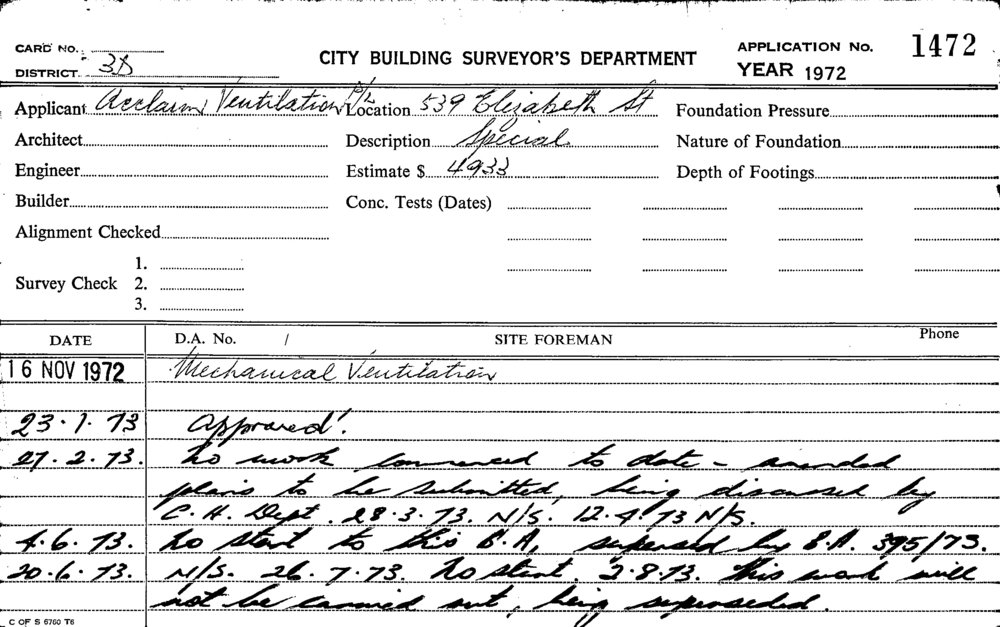 CARD No.
DISTRICT 3D
CITY BUILDING SURVEYOR'S DEPARTMENT
APPLICATION No. 1472
YEAR 1972
Applicant Acclaim Ventilation P/L Location 539 Elizabeth St Foundation Pressure
Architect Description Special Nature of Foundation
Engineer Estimate $ 4933 Depth of Footings
Builder Conc. Tests (Dates)
Alignment Checked
1.
Survey Check 2.
3.
DATE D.A. No. / SITE FOREMAN Phone
16 NOV 1972 Mechanical Ventilation
23.1.73 Approved.
27.2.73. No work commenced to date - amended
plans to be submitted, being discussed by
C.H. Dept. 28.3.73. N/S. 12.4.73 N/S.
4.6.73. No start to this B.A, supersed by B.A. 395/73.
20.6.73. N/S. 26.7.73. No start. 2.8.73. This work will
not be carried out, being superseded.
C OF S 6760 T6